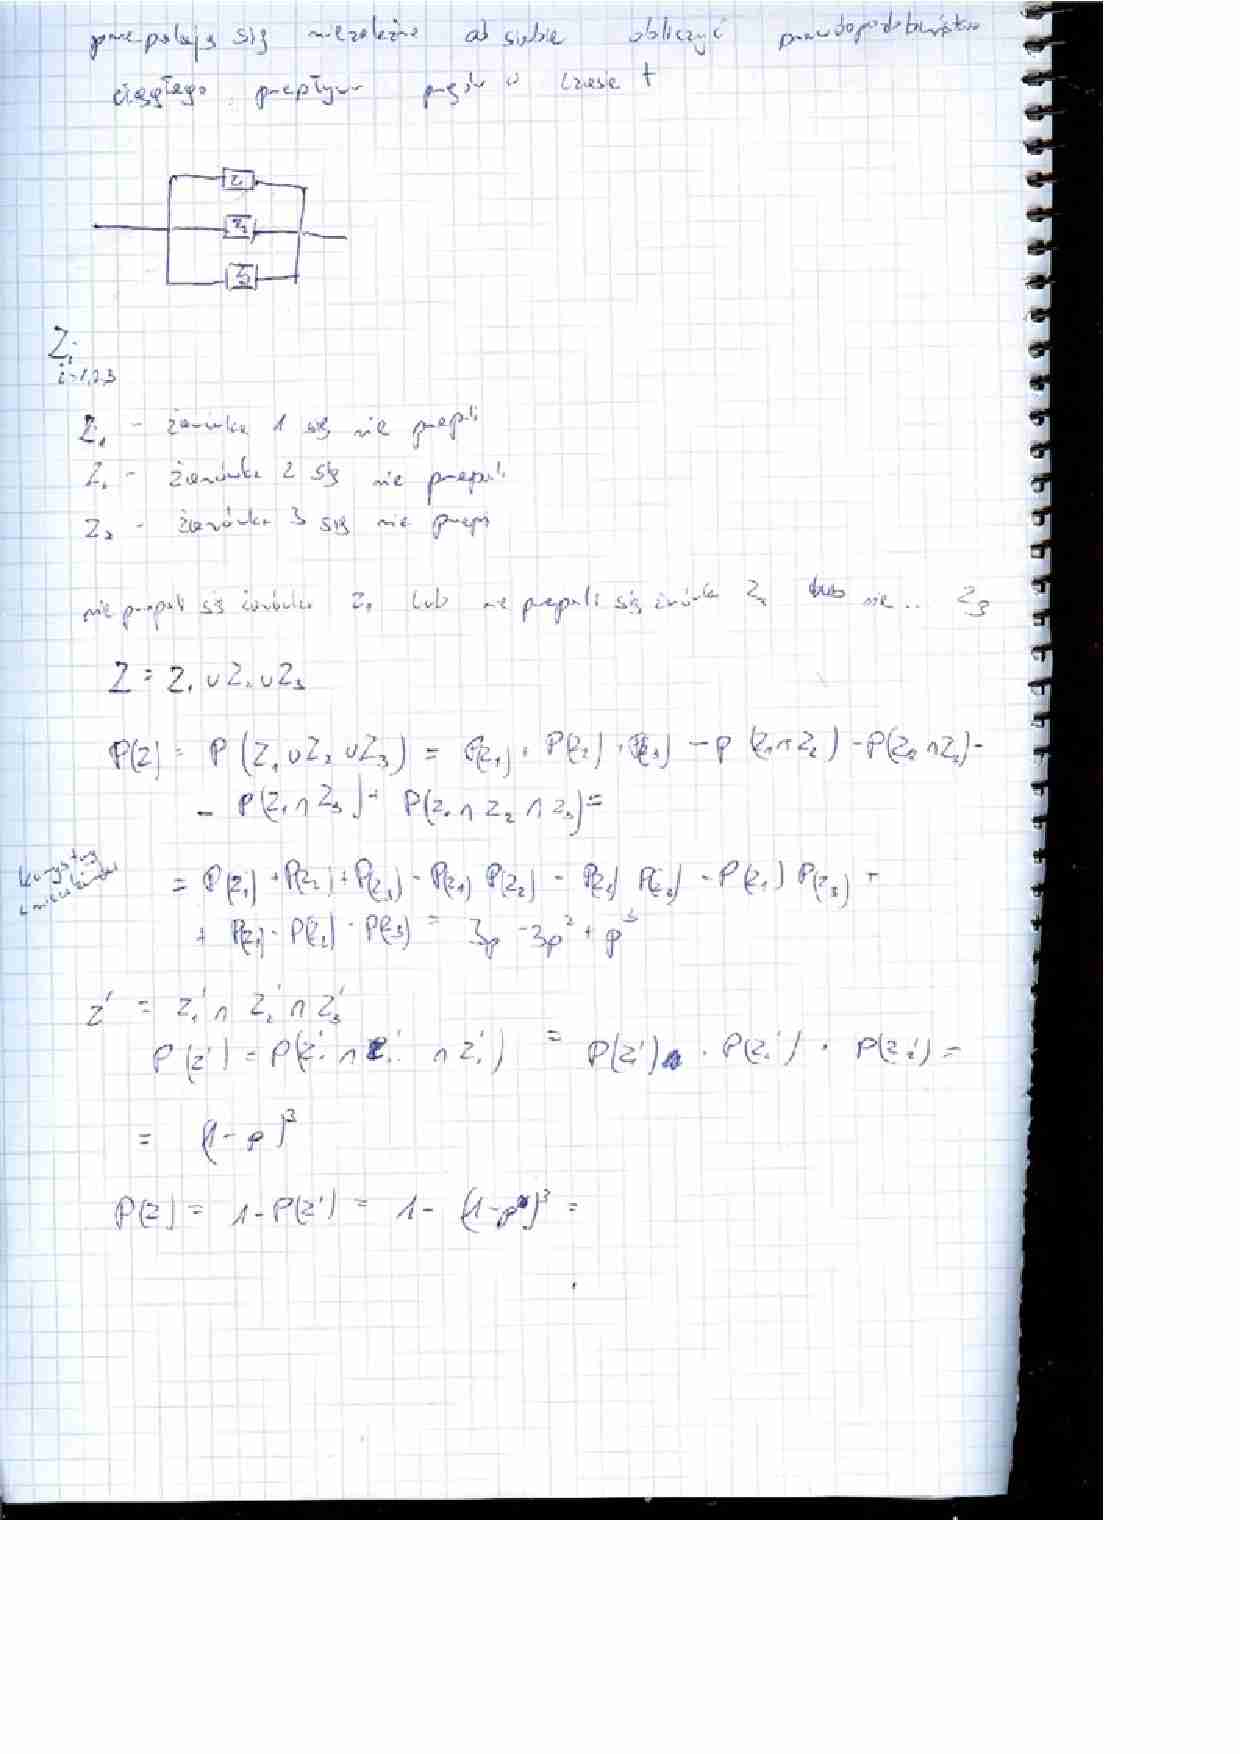 przepalają się niezależnie od siebie obliczyć prawdopodobieństwo
ciągłego przepływu prądu w czasie t
Z1
Z2
Z3
Zi
i=1,2,3
Z1 - żarówka 1 się nie przepali
Z1 - żarówka 2 się nie przepali
Z2 - żarówka 3 się nie przep
nie przepali się żarówka Z1 lub nie przepali się żrówka Z2 lub nie .. Z3
Z = Z1 ∪ Z2 ∪ Z3
P(Z) = P(Z1 ∪ Z2 ∪ Z3) = P(Z1) + P(Z2) + P(Z3) - P(Z1 ∩ Z2) - P(Z2 ∩ Z3) -
- P(Z1 ∩ Z3) + P(Z1 ∩ Z2 ∩ Z3) =
= P(Z1) + P(Z2) + P(Z3) - P(Z1) P(Z2) - P(Z2) P(Z3) - P(Z1) P(Z3) +
+ P(Z1) · P(Z2) · P(Z3) = 3p - 3p² + p³
Z' = Z1' ∩ Z2' ∩ Z3'
P(Z') = P(Z1' ∩ Z2' ∩ Z3') = P(Z1') · P(Z2') · P(Z3') =
= (1-p)³
P(Z) = 1 - P(Z') = 1 - (1-p)³ =